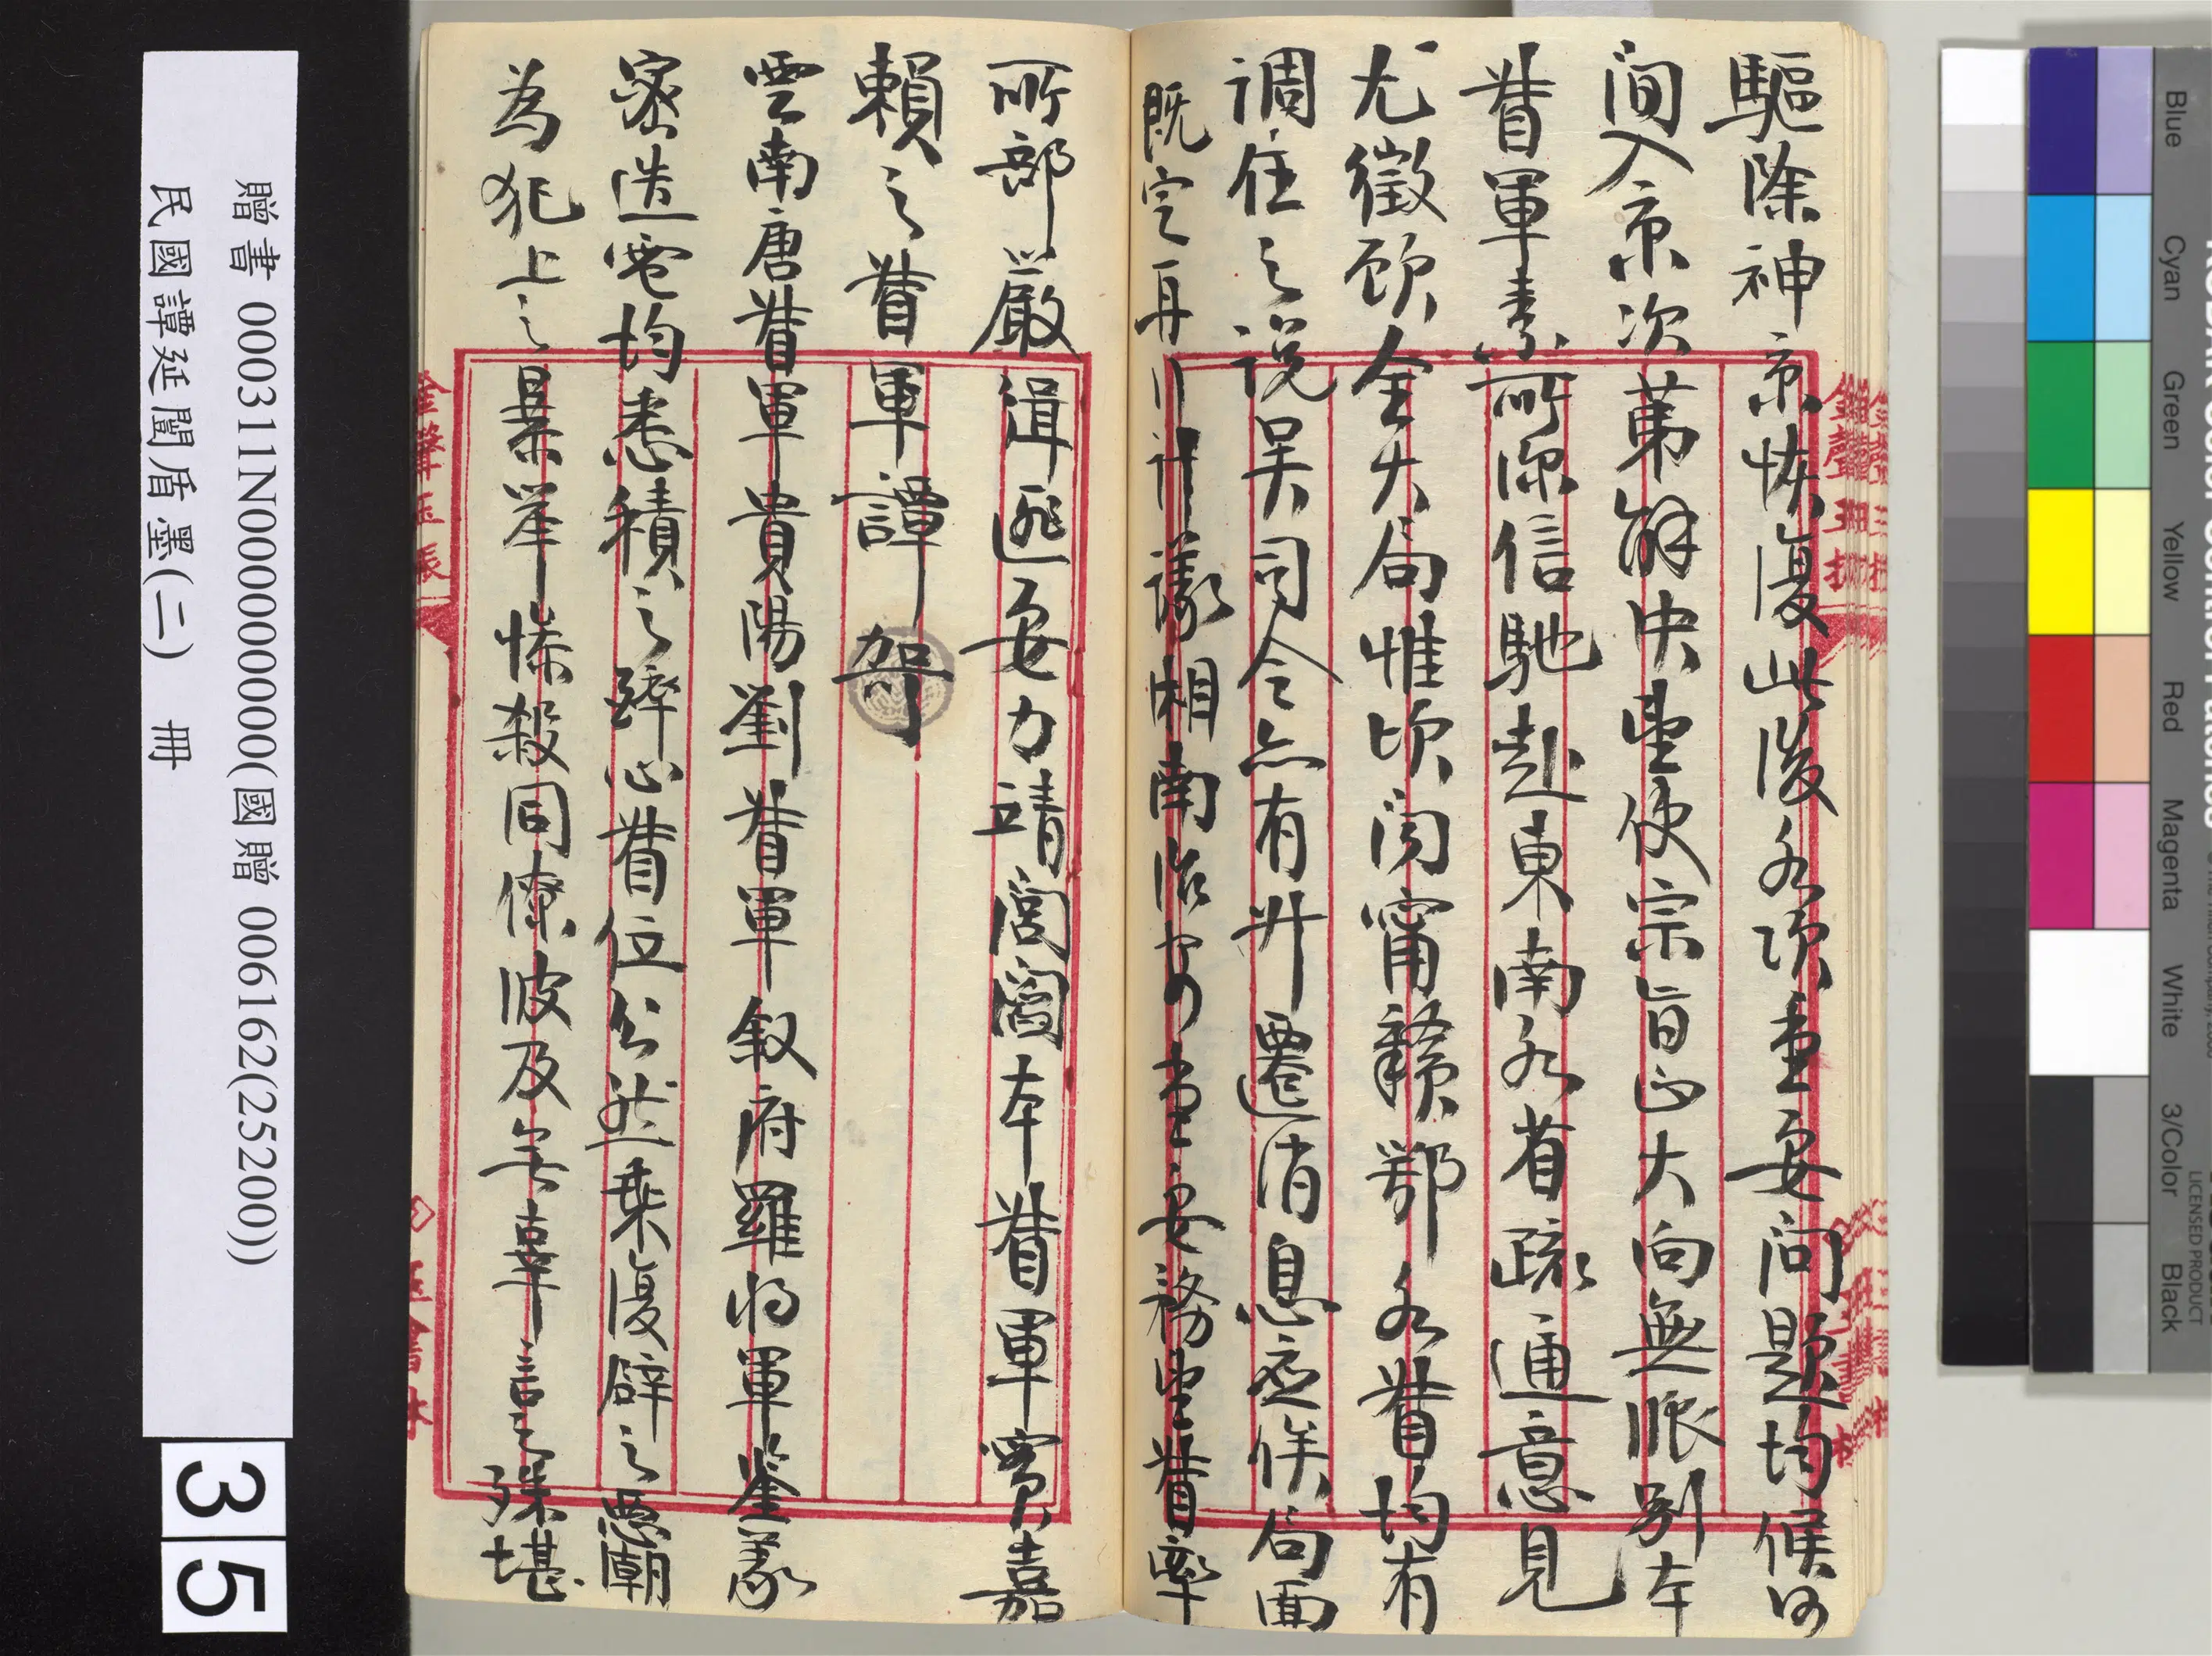 驅除神京恢復此後各項重要問題均候河
間入京次第解決使宗旨正大向無別本
督軍素所深信馳赴東南各省疏通意見
尤徵顧全大局惟頃閱甯贛鄂各督均有
調任之說吳司令亦有升遷消息應俟局面
既定再行計議湘南治安重要務望督率
所部嚴緝匪要力靖閭閻本督軍實嘉
賴之督軍譚哿
雲南唐督軍貴陽劉督軍敘府羅將軍鑒蒙
密迭電均悉積之躋心督位公然乘復辟之惡潮
為犯上之暴舉慘殺同僚波及無辜言之殊堪
贈書 000311N000000000000(國贈 006162(25200))
民國譚延闓盾墨(二) 冊
35
Blue
Cyan
Green
Yellow
Red
Magenta
White
3/Color
Black
LICENSED PRODUCT